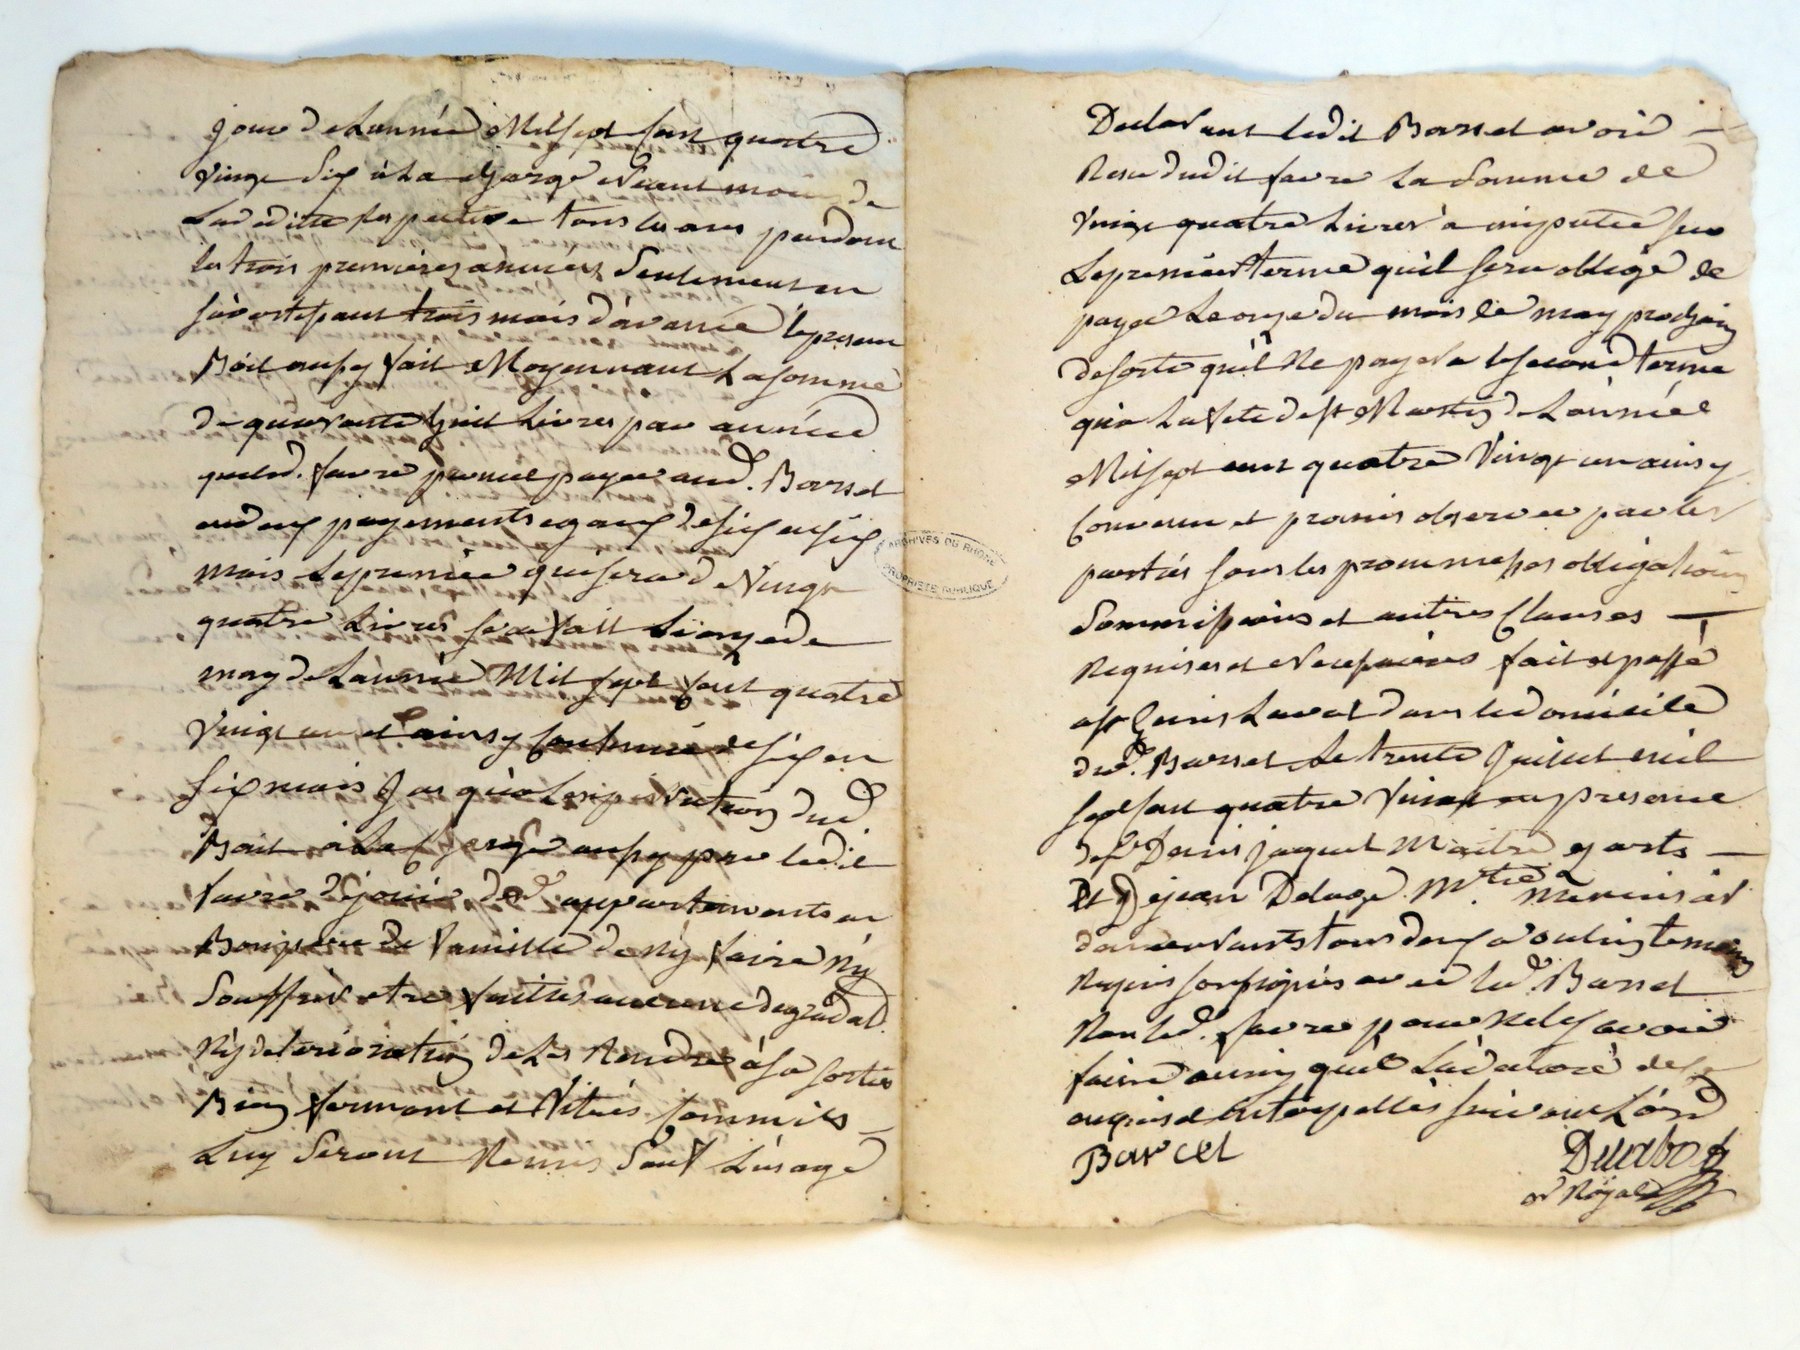 jour de Lannée Mil sept sent quatre
Vingt Six à La charge Neant moin de
tous les ans pendant
les trois premieres années Seulement en
trois mois d'avance le present
Bail aussy fait Moyennant La somme
de quarante huit Livres par année
queled. favre promet payer aud. Barset
en deux payements egaux de six en six
mois Le premier qui sera de Vingt
quatre Livres sera fait Le onze de
may de Lannée Mil sept sent quatre
Vingt un et ainsy continué de six en
six mois jusqu'à Lexpiration dud
Bail à La charge aussy par ledit
favre de jouir desd appartements en
Bon pere de famille de Ny faire Ny
Souffrir etre faittes aucune degradat.
Ny deterioration de Les Rendre à sa sortie
Bien fermant et Vitrés comme ils
Luy Seront Remis Sauf L'usage
Declarant ledit Barset avoir
Recu dudit favre La Somme de
Vingt quatre Livres à imputer sur
Le premier terme quil sera obligé de
payer Le onze du mois de may prochain
de sorte quil Ne payera le second terme
qu'a La fete de st Martin de Lannée
Mil sept cent quatre Vingt un ainsy
Convenu et promis observer par les
parties sous les promesses obligations
Soumissions et autres Clauses
Requises et Necessaires fait et passé
a st Genis Laval dans le domicile
dud. Barset Le trente Juillet mil
sept sent quatre Vingt en presence
de sr Denis jaquet Maitre es arts
Et de jean Delage Mtre Menuisier
demeurants tous deux a oulins temoins
Requis soussignés avec led Barset
Non led. favre pour Ne le sçavoir
faire ainsy quil La declaré de ce
enquis et interpellés suivant L'ord
Barcet
Durbo
Nore Royal
ARCHIVES DU RHONE
PROPRIETE PUBLIQUE